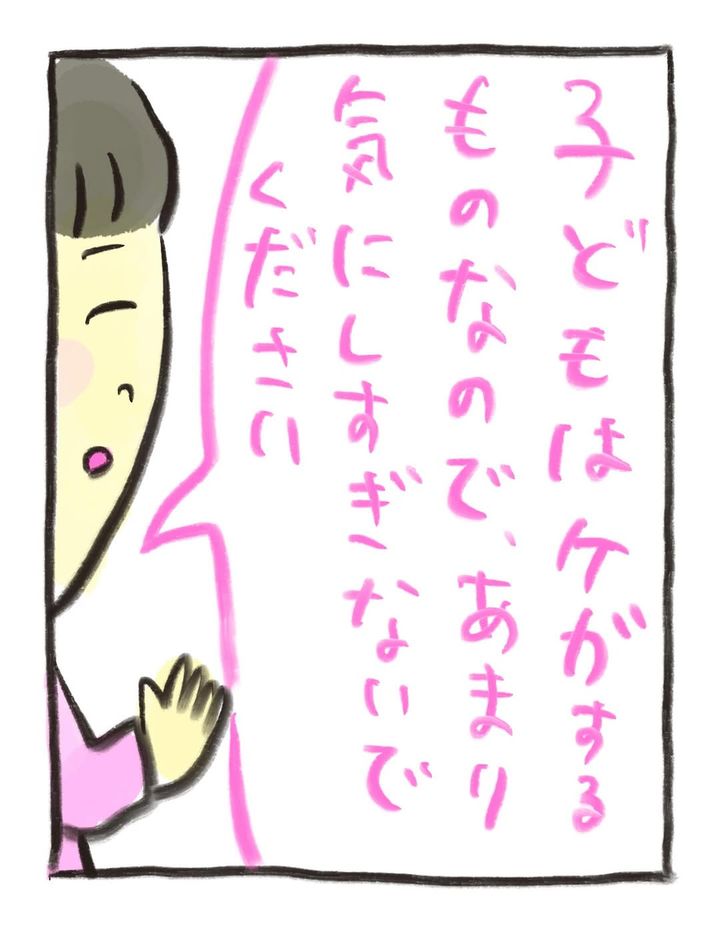 子どもはケガする
ものなので、あまり
気にしすぎないで
ください